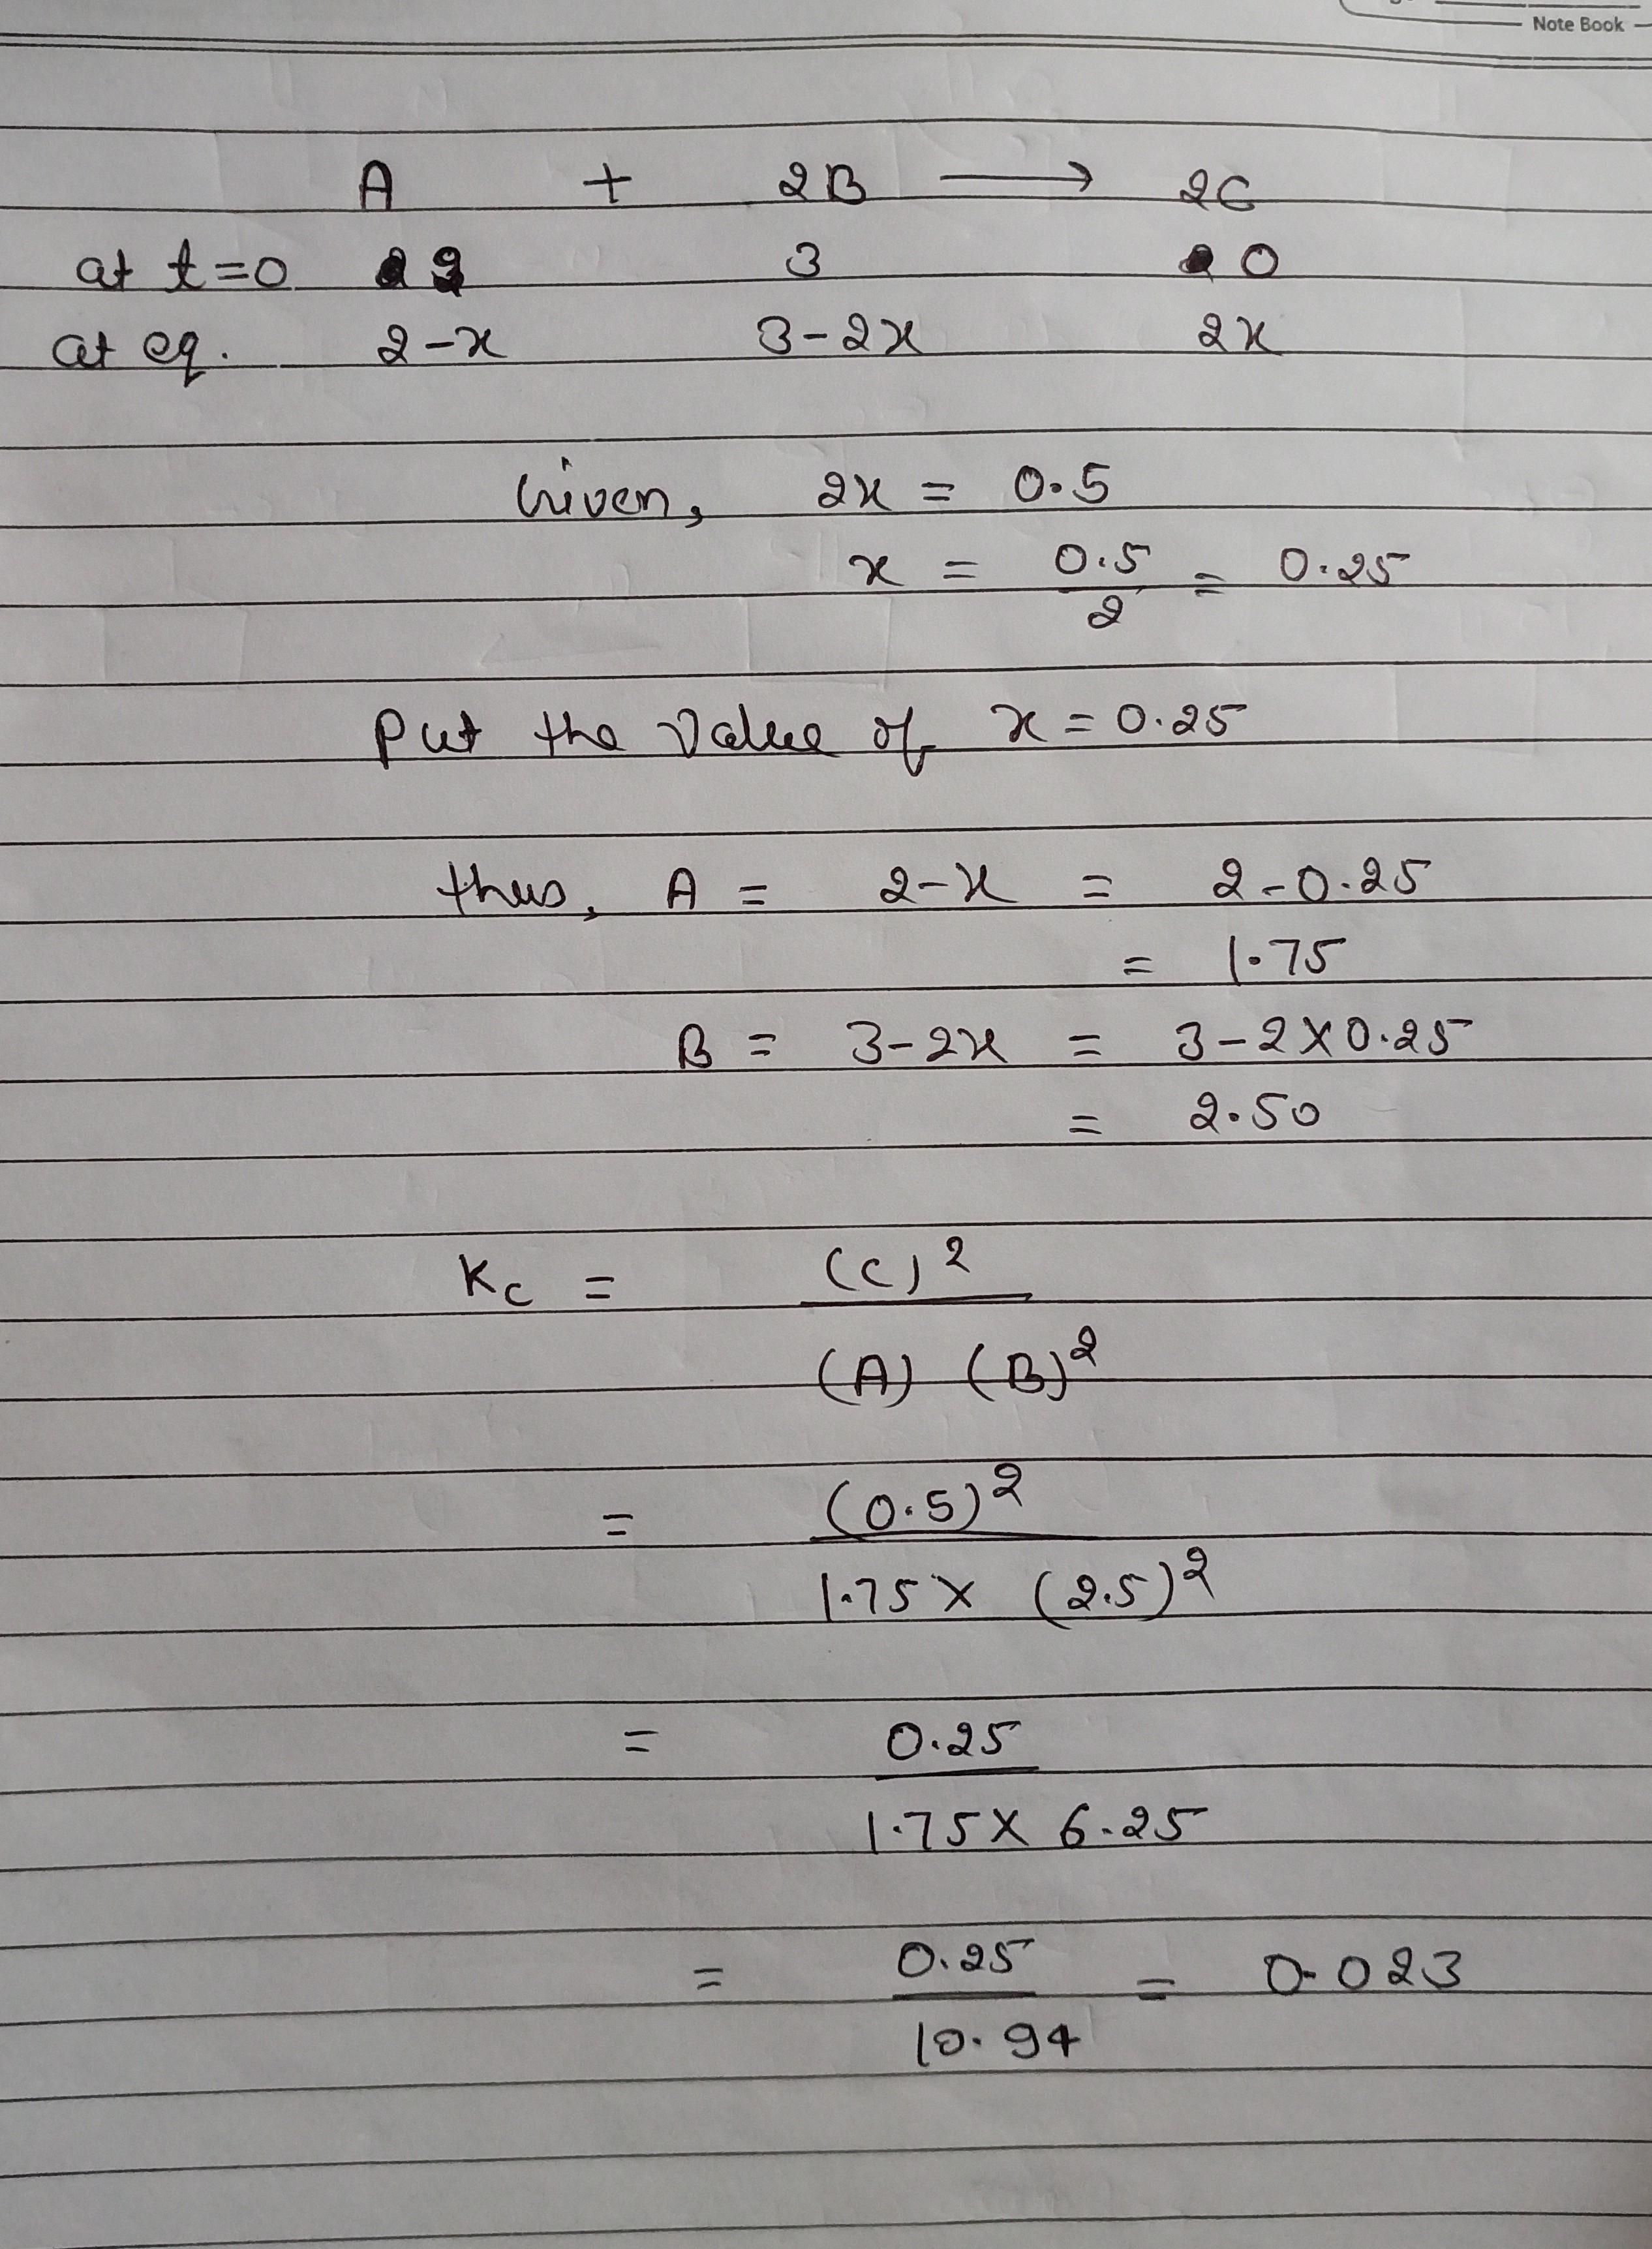 Note Book
A + 2B ⟶ 2C
at t=0 2 3 0
at eq. 2-x 3-2x 2x
Given, 2x = 0.5
x = 0.5/2 = 0.25
Put the value of x = 0.25
thus, A = 2-x = 2-0.25
= 1.75
B = 3-2x = 3-2×0.25
= 2.50
Kc = (C)²
(A) (B)²
= (0.5)²
1.75× (2.5)²
= 0.25
1.75× 6.25
= 0.25/10.94 = 0.023